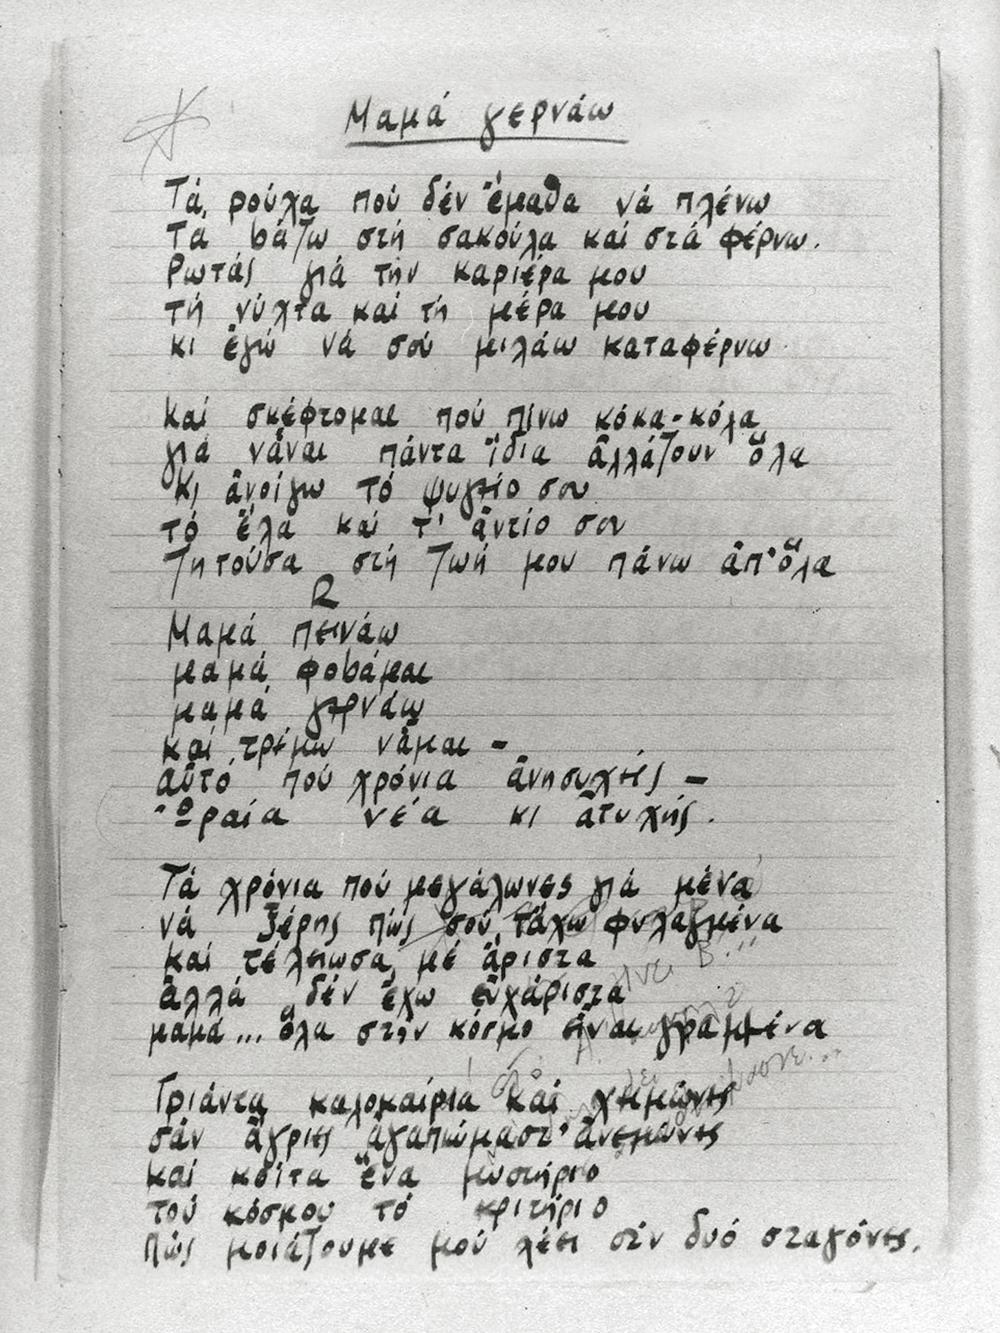 Μαμά γερνάω
Τά ρούχα πού δέν ἔμαθα νά πλένω
Τά βάζω στή σακούλα καί στά φέρνω.
Ρωτάς γιά τήν καριέρα μου
τή νύχτα καί τή μέρα μου
κι ἐγώ νά σού μιλάω καταφέρνω
καί σκέφτομαι πού πίνω κόκα-κόλα
γιά νἆναι πάντα ἴδια ἀλλάζουν ὅλα
κι ἀνοίγω τό ψυγείο σου
τό ἔλα καί τ' ἀντίο σου
ζητούσα στή ζωή μου πάνω ἀπ' ὅλα
R
Μαμά πεινάω
μαμά φοβάμαι
μαμά γερνάω
καί τρέμω νἆμαι -
αὐτό πού χρόνια ἀνησυχείς -
Ὡραία νέα κι ἀτυχής.
Τά χρόνια πού μεγάλωνες γιά μένα
νά ξέρης πώς σού τἄχω φυλαγμένα
καί τέλειωσα με ἄριστα
ἀλλά δέν ἔχω εὐχάριστα
μαμά... ὅλα στήν κόσμο εἶναι γραμμένα
Τριάντα καλοκαίρια καί χειμώνες
σάν ἄγριες ἀγαπιώμαστ' ἀνεμώνες
καί κοίτα ἕνα μυστήριο
τού κόσμου τό κριτήριο
Πώς μοιάζουμε μού λέει σάν δυό σταγόνες.